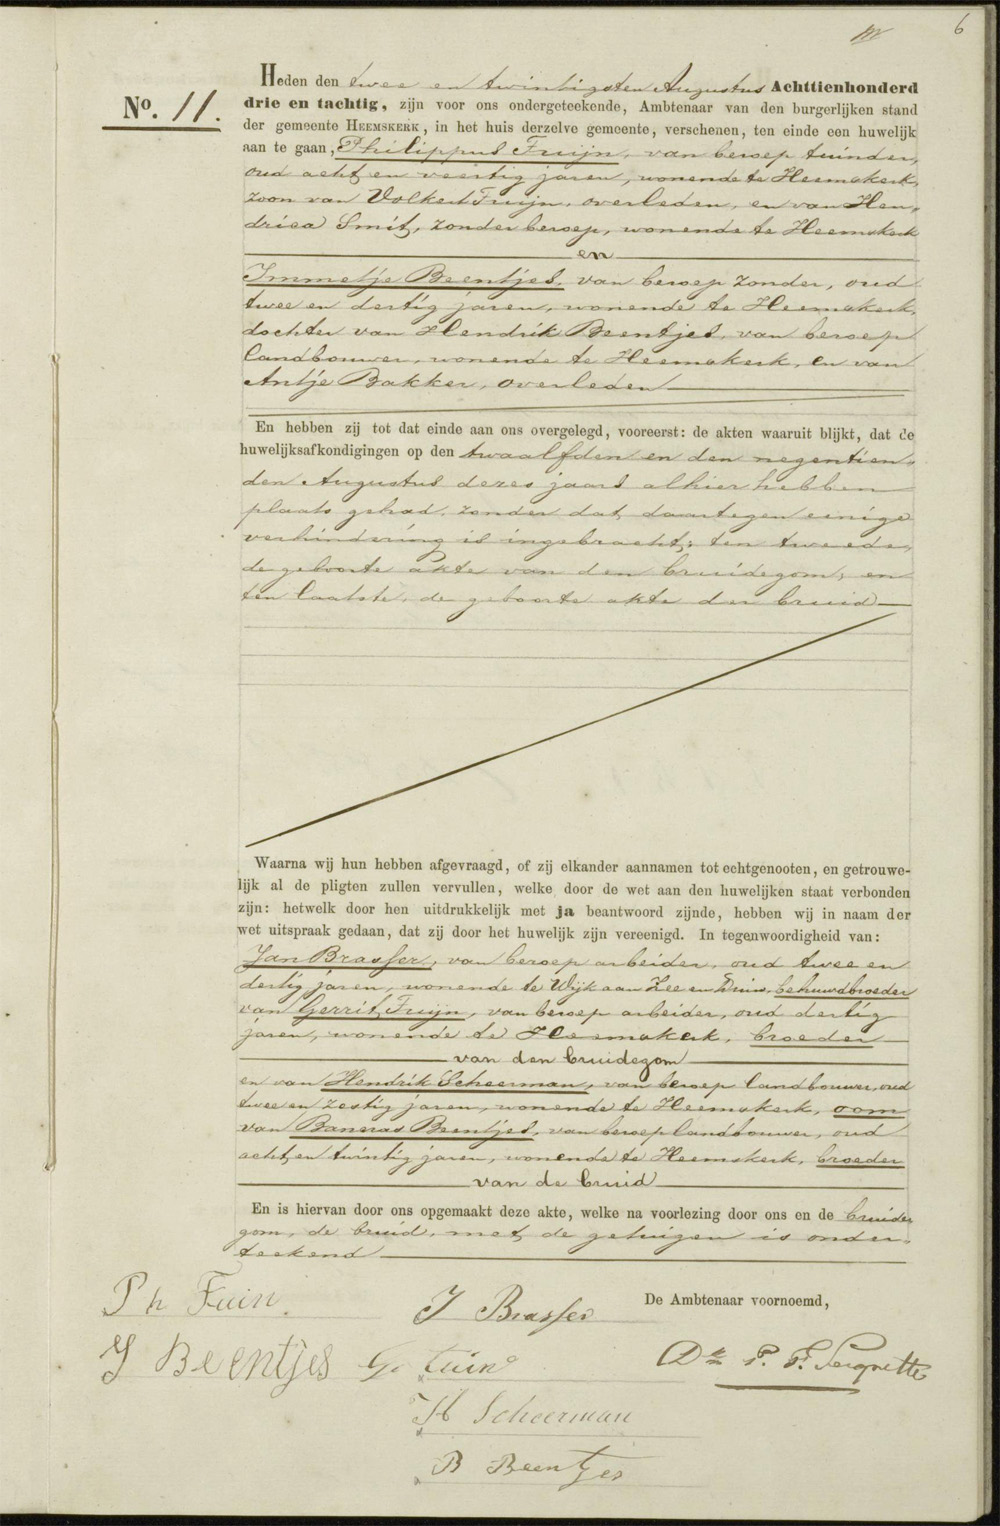 6
No. 11.
Heden den twee en twintigsten Augustus Achttienhonderd
drie en tachtig, zijn voor ons ondergeteekende, Ambtenaar van den burgerlijken stand
der gemeente HEEMSKERK, in het huis derzelve gemeente, verschenen, ten einde een huwelijk
aan te gaan, Philippus Fuijn, van beroep tuinder,
oud acht en veertig jaren, wonende te Heemskerk,
zoon van Volkert Fuijn, overleden, en van Hen-
drica Smit, zonder beroep, wonende te Heemskerk
en
Immetje Beentjes, van beroep zonder, oud
twee en dertig jaren, wonende te Heemskerk,
dochter van Hendrik Beentjes, van beroep
landbouwer, wonende te Heemskerk, en van
Antje Bakker, overleden
En hebben zij tot dat einde aan ons overgelegd, vooreerst: de akten waaruit blijkt, dat de
huwelijksafkondigingen op den twaalfden en den negentien-
den Augustus dezes jaars alhier hebben
plaats gehad, zonder dat daartegen eenige
verhindering is ingebracht; ten tweede,
de geboorte akte van den bruidegom, en
ten laatste, de geboorte akte der bruid
Waarna wij hun hebben afgevraagd, of zij elkander aannamen tot echtgenooten, en getrouwe-
lijk al de pligten zullen vervullen, welke door de wet aan den huwelijken staat verbonden
zijn: hetwelk door hen uitdrukkelijk met ja beantwoord zijnde, hebben wij in naam der
wet uitspraak gedaan, dat zij door het huwelijk zijn vereenigd. In tegenwoordigheid van:
Jan Brasser, van beroep arbeider, oud twee en
dertig jaren, wonende te Wijk aan Zee en Duin, behuwdbroeder
van Gerrit Fuijn, van beroep arbeider, oud dertig
jaren, wonende te Heemskerk, broeder
van den bruidegom
en van Hendrik Scheerman, van beroep landbouwer, oud
twee en zestig jaren, wonende te Heemskerk, oom
van Bancras Beentjes, van beroep landbouwer, oud
acht en twintig jaren, wonende te Heemskerk, broeder
van de bruid
En is hiervan door ons opgemaakt deze akte, welke na voorlezing door ons en de bruide-
gom, de bruid, met de getuigen is onder-
teekend
Ph Fuin.
J Brasser
De Ambtenaar voornoemd,
I Beentjes
G. tuin
Dr. P. F. Seignette
H Scheerman
B Beentjes